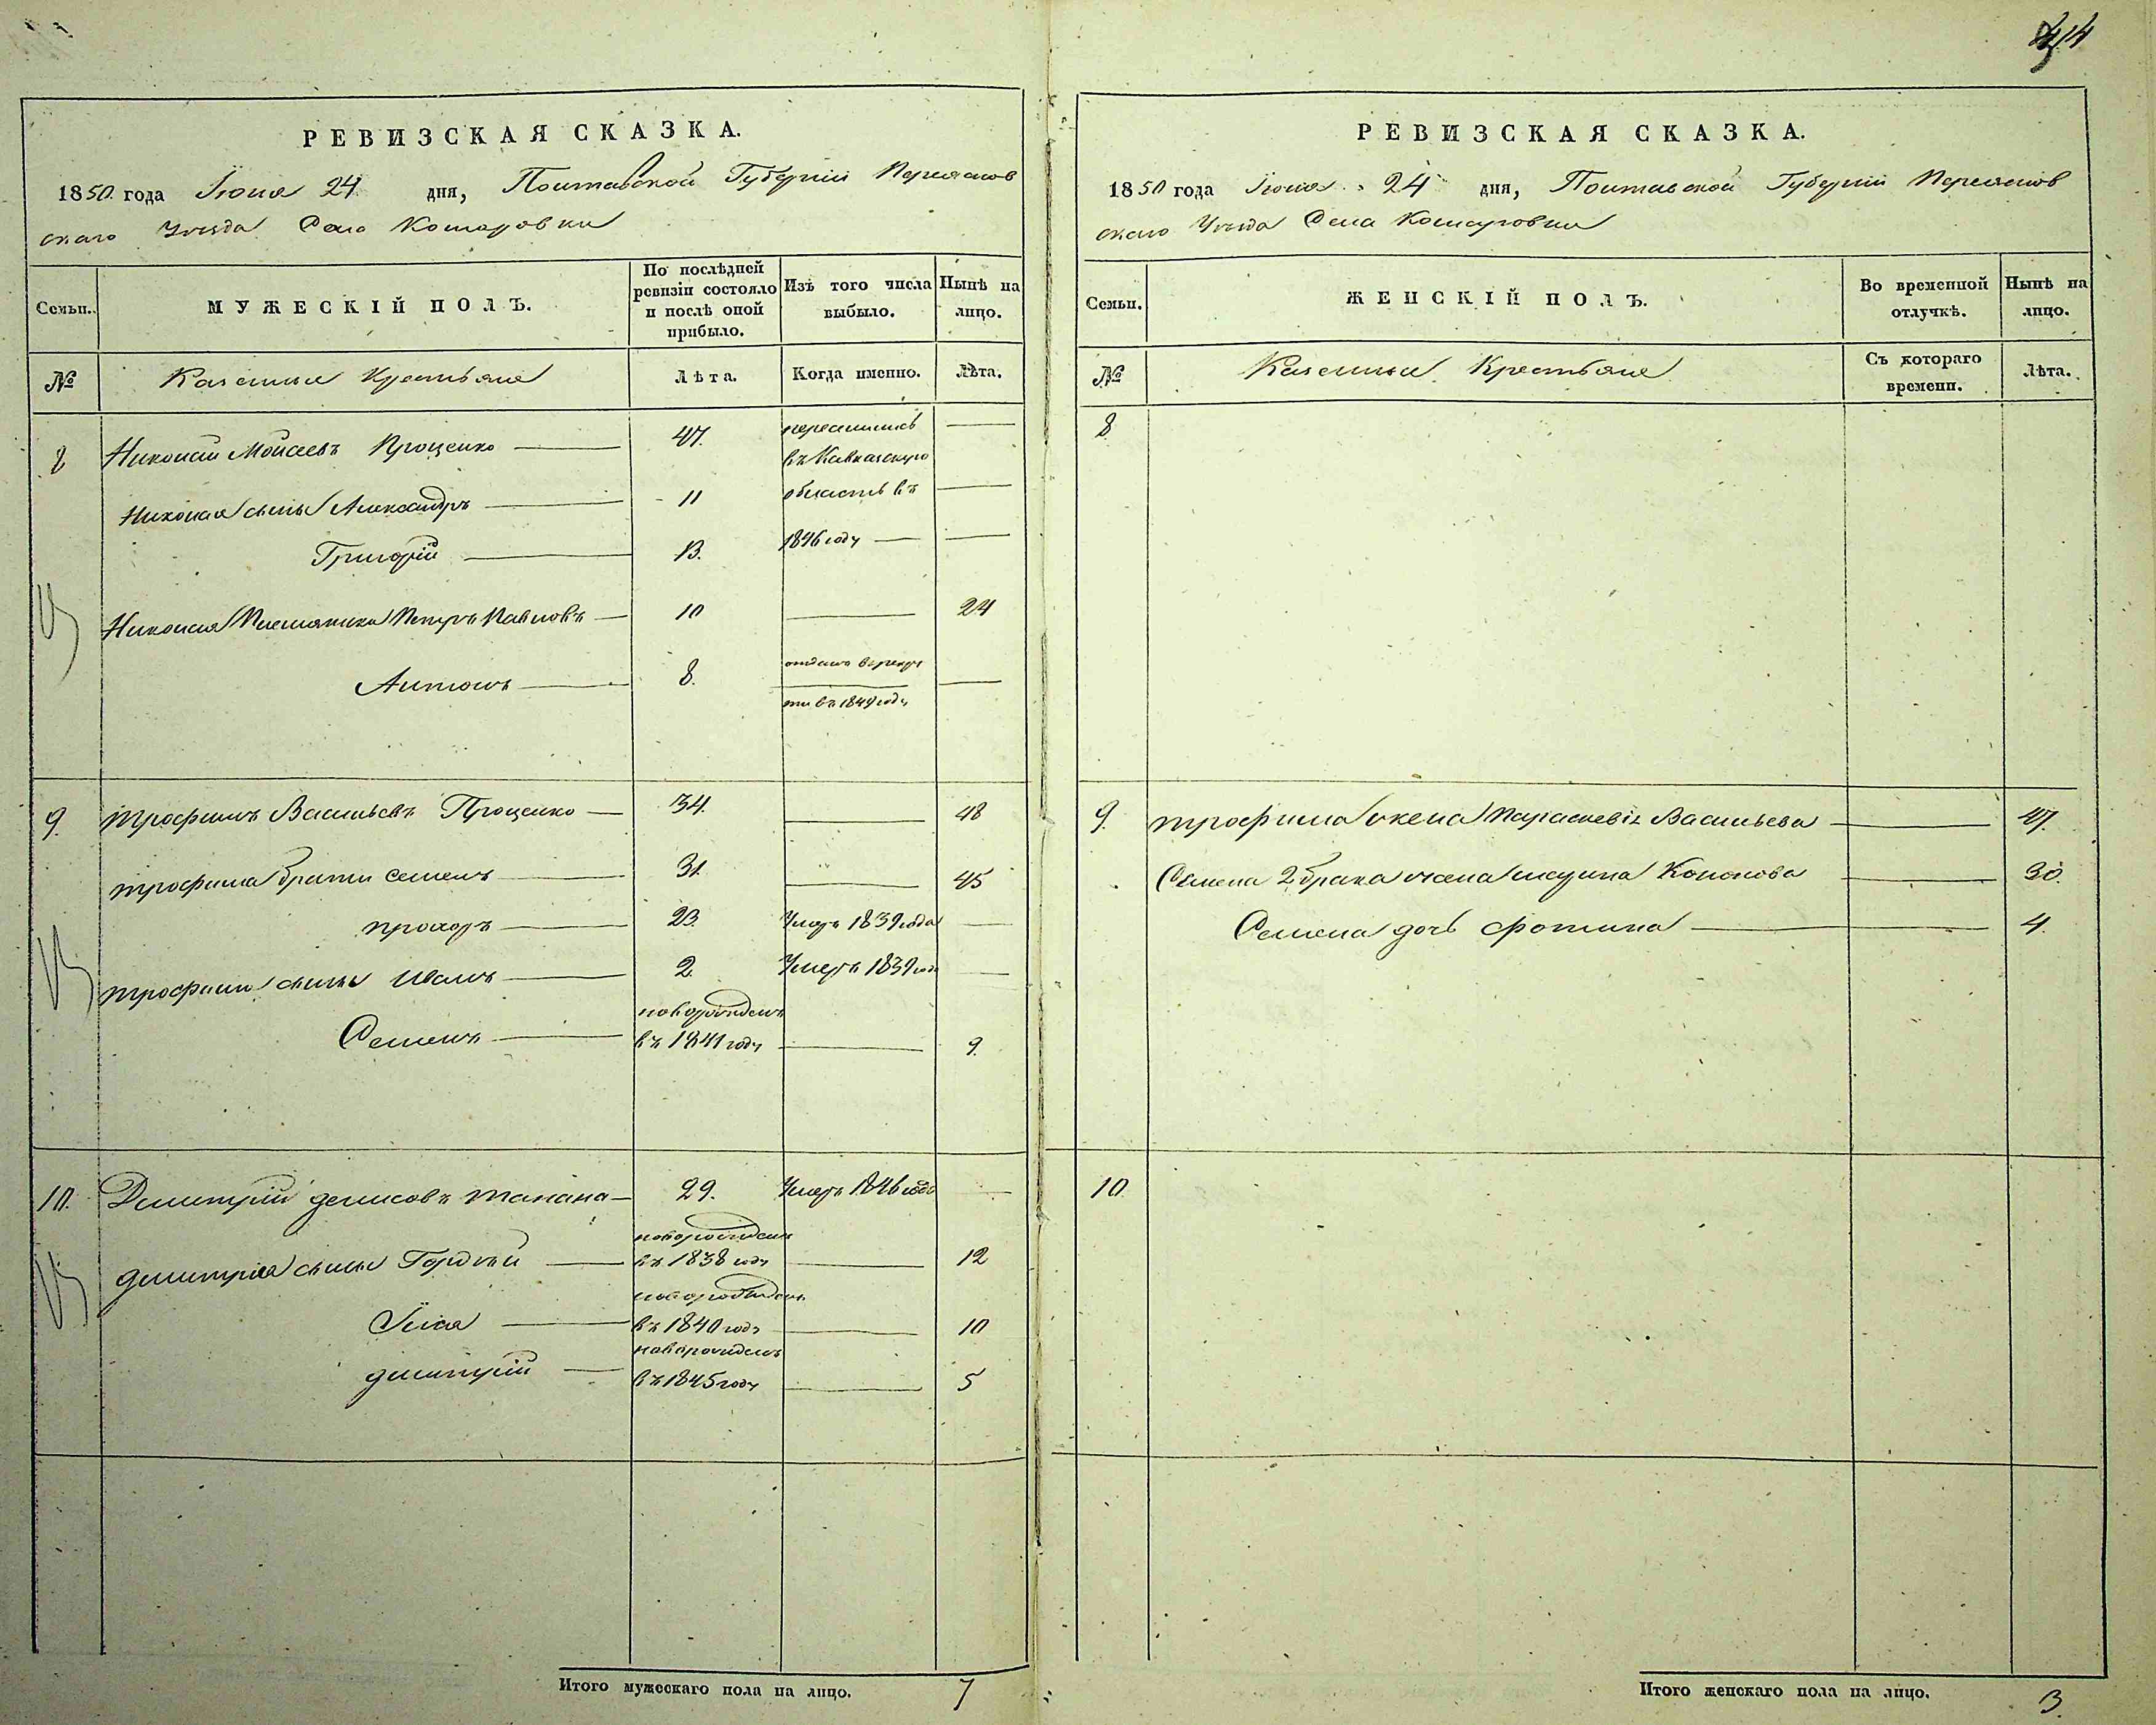 РЕВИЗСКАЯ СКАЗКА.
1850 года Іюня 24 дня, Полтавской Губерніи Переяслов
скаго Уѣзда Села Комаровки
Семьи.
МУЖЕСКІЙ ПОЛЪ.
По послѣдней ревизіи состояло и послѣ оной прибыло.
Изъ того числа выбыло.
Нынѣ на лицо.
№
Казенные Крестьяне
Лѣта.
Когда именно.
Лѣта.
8 Николай Мойсеевъ Проценко 47. переселились
въ Кавказскую
Николая сынъ Александръ 11 область въ
Григорій 13. 1846 году
Николая Племянники Петръ Павловъ 10 24
Антонъ 8. отданъ в рекру
ты въ 1849 году
9. Трофимъ Васильевъ Проценко 34. 48
Трофима братъя Семенъ 31. 45
Прохоръ 23. Умеръ 1839 года
Трофима сыны Иванъ 2 Умеръ 1839 года
новорожденъ
Семенъ въ 1841 году 9.
10. Дмитрій Денисовъ Танана 29. Умеръ 1846 года
новорожденъ
Дмитрія сыны Гордѣй въ 1838 году 12
новорожденъ
Илія въ 1840 году 10
новорожденъ
Дмитрій въ 1845 году 5
Итого мужескаго пола на лицо. 7
РЕВИЗСКАЯ СКАЗКА.
1850 года Іюня 24 дня, Полтавской Губерніи Переяслов
скаго Уѣзда Села Комаровки
Семьи.
ЖЕНСКІЙ ПОЛЪ.
Во временной отлучкѣ.
Нынѣ на лицо.
№
Казенные Крестьяне
Съ котораго времени.
Лѣта.
8
9. Трофима жена Параскевія Васильева 47.
Семена 2 брака жена Кононова 30.
Семена дочь Фотина 4.
10.
Итого женскаго пола на лицо. 3.